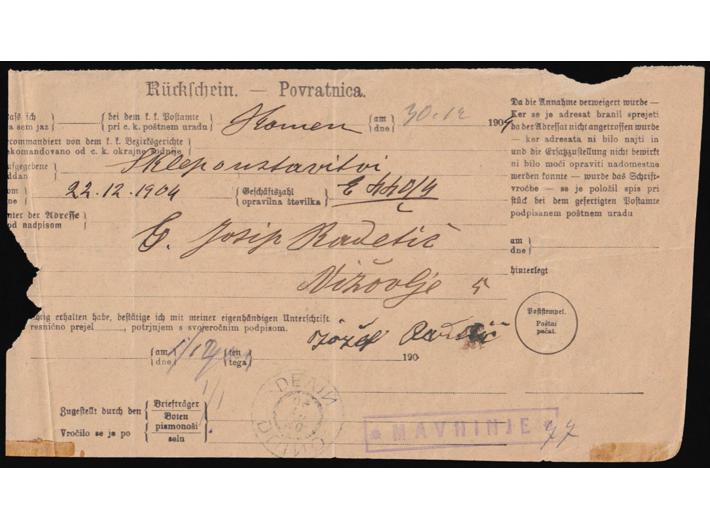 Rückschein. — Povratnica.
ich bei dem k. k. Postamte am
sem jaz pri c. k. poštnem uradu Komen dne 30.12 1904
ecommandiert von dem k. k. Bezirksgerichte
ekomandovano od c. k. okrajne sodnije
ufgegebene
ddan
22.12.1904 Geschäftszahl
opravilna številka E 440/4
nter der Adresse
od nadpisom
G. Josip Radetič
Nižovlje 5
erhalten habe, bestätige ich mit meiner eigenhändigen Unterschrift
resnično prejel, potrjujem s svojeročnim podpisom.
Jožef
am ten 190
dne tega
Zugestellt durch den Briefträger
Boten
Vročilo se je po pismonoši
selu
Da die Annahme verweigert wurde —
Ker se je adresat branil sprejeti
da der Adressat nicht angetroffen wurde
— ker adresata ni bilo najti in
und die Ersatzzustellung nicht bewirkt
ni bilo moči opraviti nadomestne
werden konnte — wurde das Schrift-
vročbe — se je položil spis pri
stück bei dem gefertigten Postamte
podpisanem poštnem uradu
am
dne
hinterlegt
Poststempel.
Poštni
pečat.
DEVIN
* MAVHINJE *